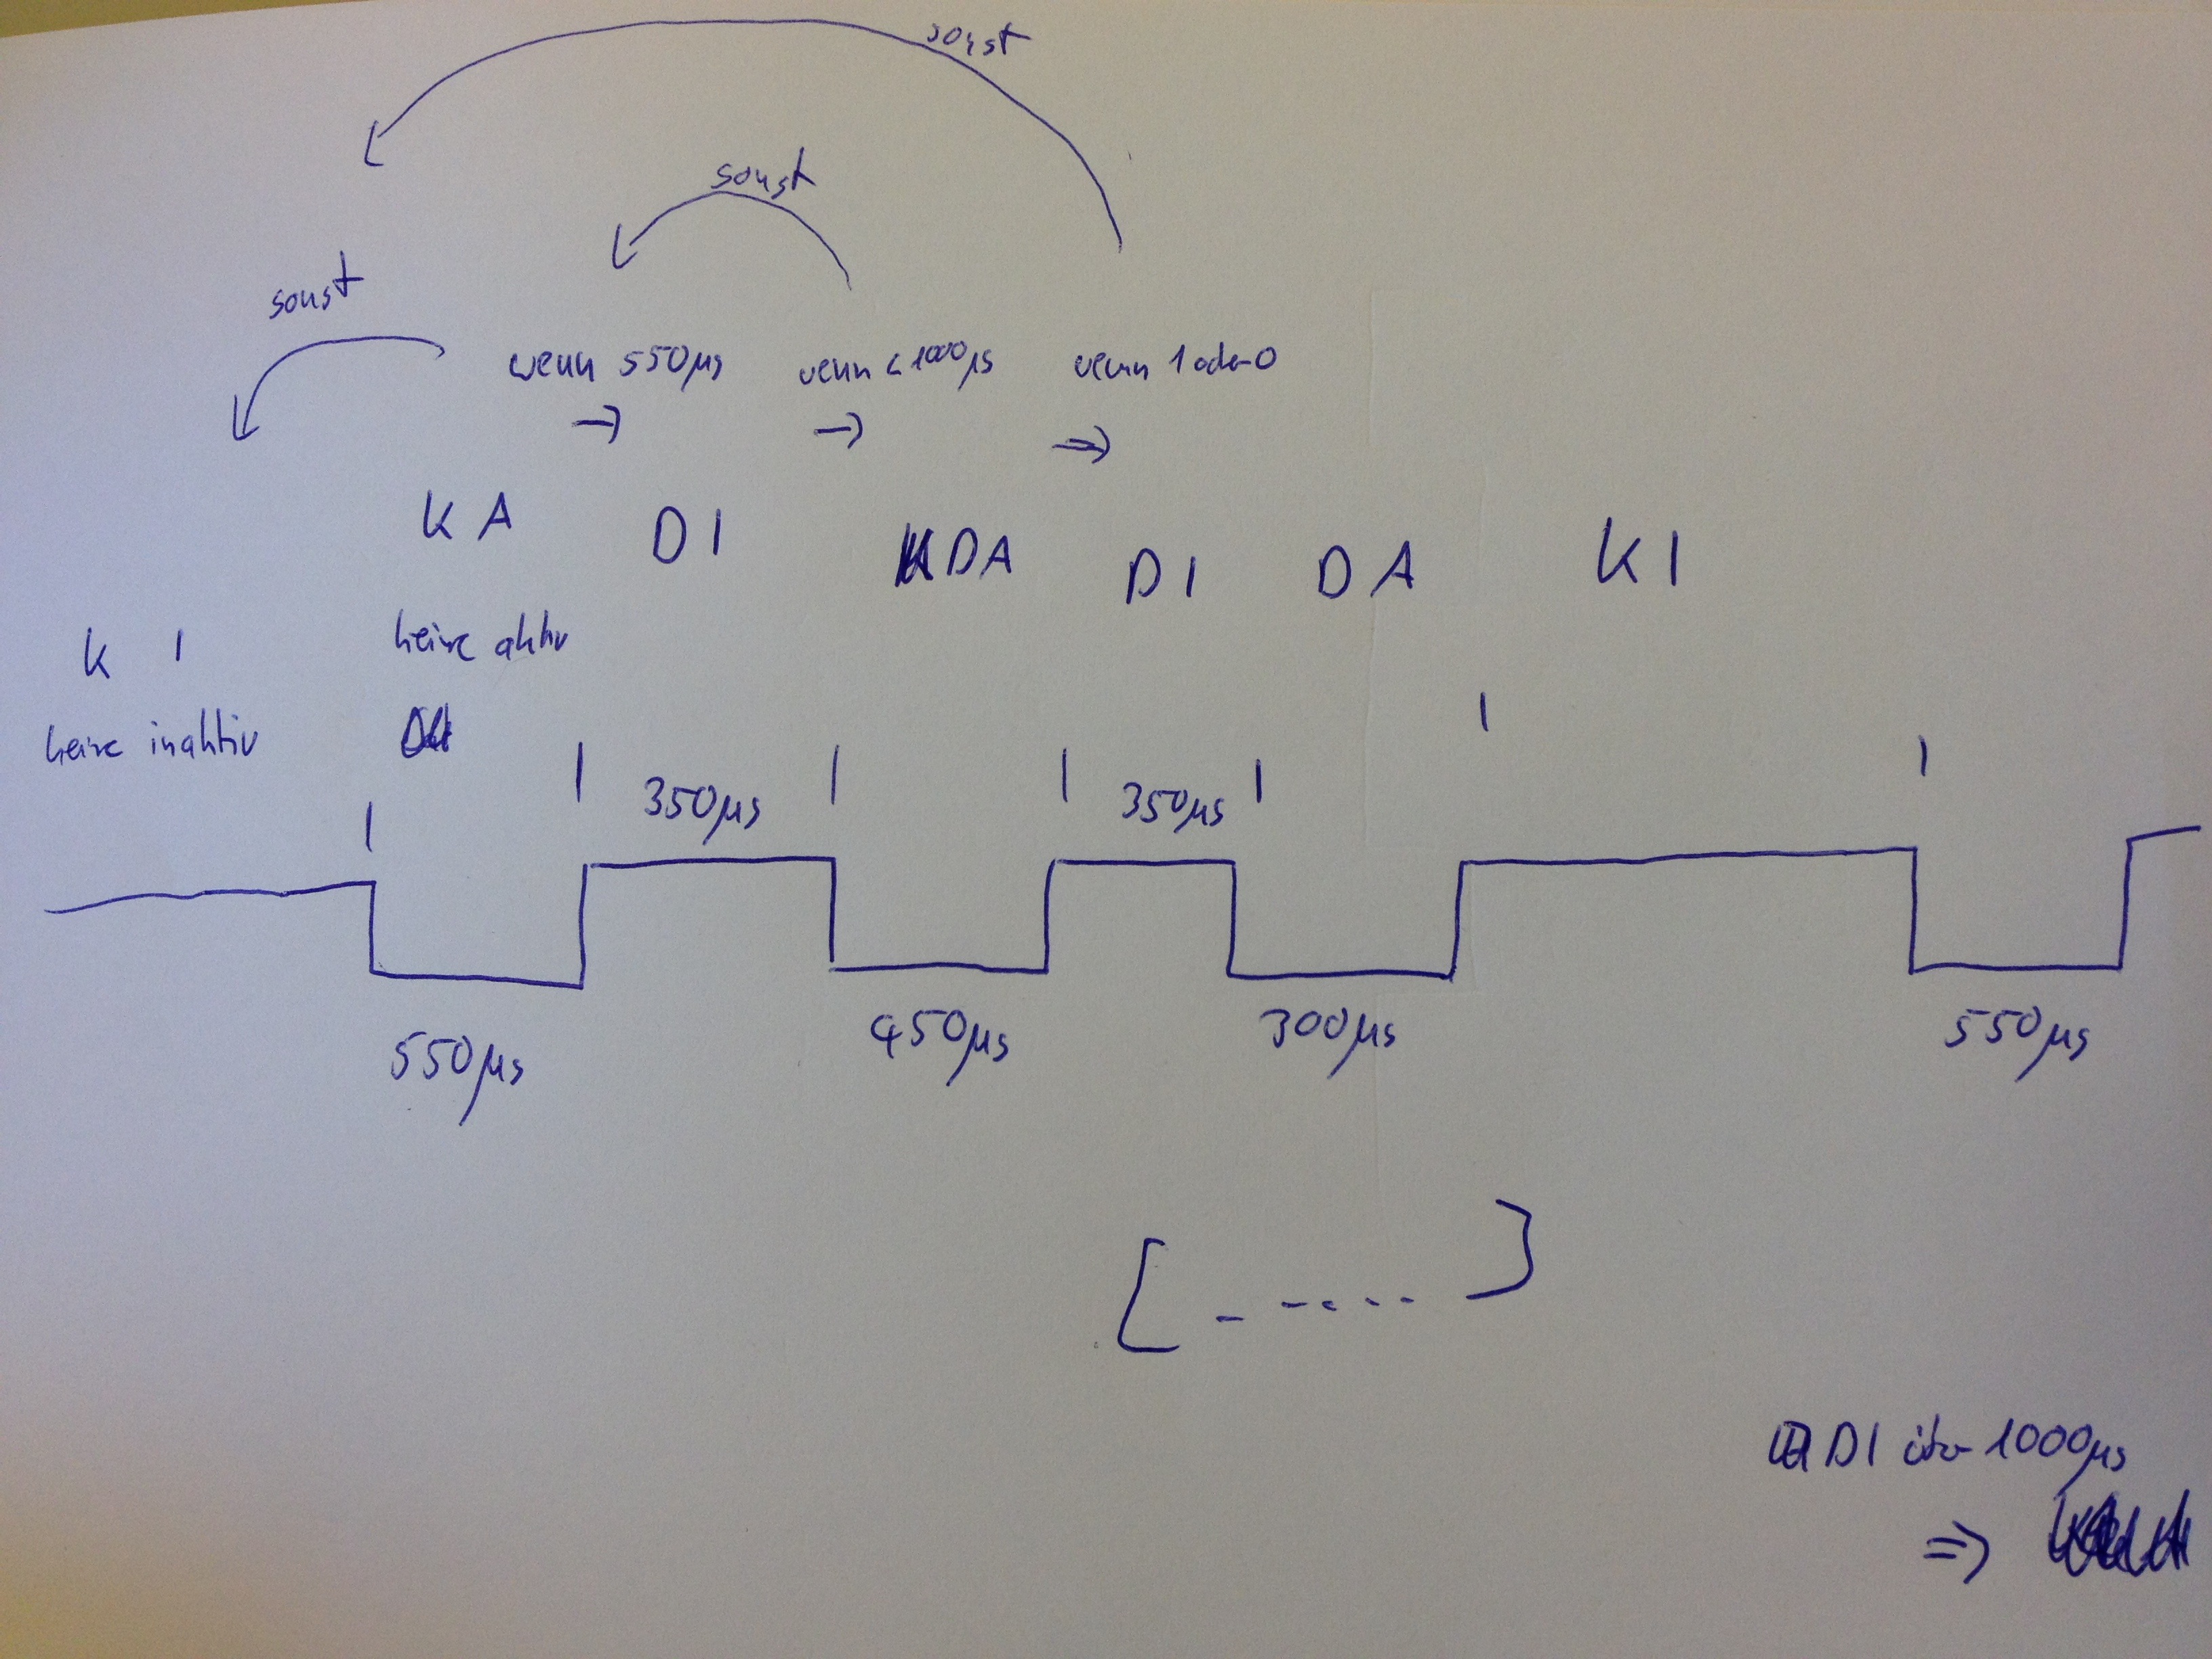 sonst
sonst
sonst
wenn 550µs
wenn < 1000µs
wenn 1 oder 0
→
→
⇒
K A
D I
DA
D I
D A
K I
K I
keine aktiv
keine inaktiv
350µs
350µs
550µs
450µs
300µs
550µs
[ - - - - - ]
DI über 1000µs
⇒